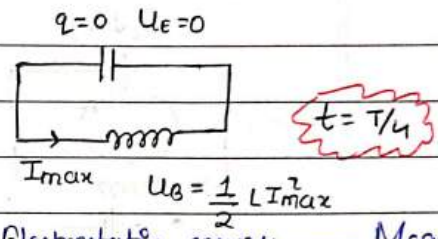 q=0 U_E=0
t = T/4
I_max U_B = 1/2 L I²_max